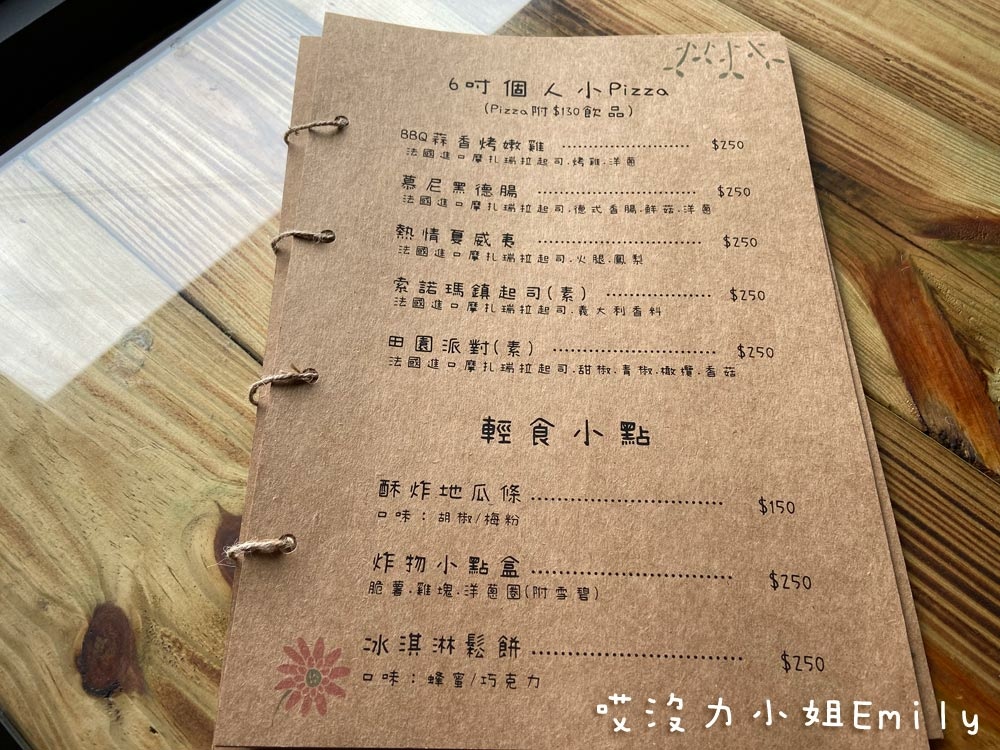 6吋個人小Pizza
(Pizza附$130飲品)
BBQ蒜香烤嫩雞 $250
法國進口摩扎瑞拉起司.烤雞.洋蔥
慕尼黑德腸 $250
法國進口摩扎瑞拉起司.德式香腸.鮮菇.洋蔥
熱情夏威夷 $250
法國進口摩扎瑞拉起司.火腿.鳳梨
索諾瑪鎮起司(素) $250
法國進口摩扎瑞拉起司.義大利香料
田園派對(素) $250
法國進口摩扎瑞拉起司.甜椒.青椒.橄欖.香菇
輕食小點
酥炸地瓜條 $150
口味：胡椒/梅粉
炸物小點盒 $250
脆薯.雞塊.洋蔥圈(附雪碧)
冰淇淋鬆餅 $250
口味：蜂蜜/巧克力
哎沒力小姐Emily